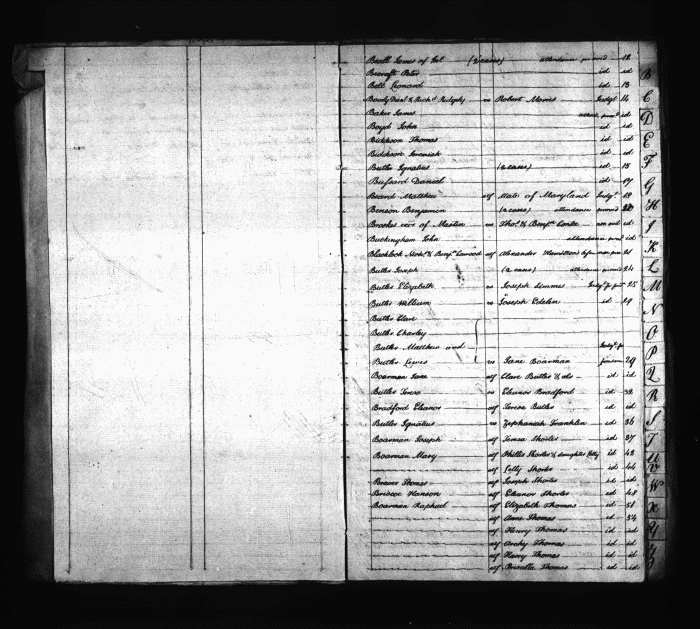 Beall James of Jos (2 cases) attendance proved 12
Becraft Peter id id
Belt Leonard id 13
Bowly Danl & Richd Ridgely vs Robert Morris Judgt 14
Baker James attend. provd id
Boyd John id id
Biddison Thomas id id
Biddison Jeremiah id id
Butler Ignatius (2 cases) id 15
Daniel id 17
Beard Matthew adj State of Maryland Judgt 19
Benson Benjamin (2 cases) attendance proved 22
Brookes exr of Martin vs Thos & Benjn Contee non est id
Buckingham John attendance provd id
Blacklock Nichs & Benjn adj Alexander Hamilton's
Butler Joseph (2 cases) attendance proved 24
Butler Elizabeth vs Joseph Simms Judgt 25
Butler William vs Joseph Edelen id 29
Butler Clare
Butler Charley
Butler Matthew and Judgt for
Butler Lewis vs Jane Boarman freedom 29
Boarman Jane adj Clare Butler & als id id
Butler Teresa vs Eleanor Bradford id 32
Bradford Eleanor adj Teresa Butler id id
Butler Ignatius vs Zephaniah Franklin id 36
Boarman Joseph adj Teresa Shorter id 37
Boarman Mary adj Phillis Shorter & daughter Letty id 43
adj Letty Shorter id 44
Beaver Thomas adj Joseph Shorter id id
Briscoe Hanson adj Eleanor Shorter id 48
Boarman Raphael adj Elizabeth Thomas id 51
adj Anne Thomas id 54
adj Henry Thomas id id
adj Archy Thomas id id
adj Harry Thomas id id
adj Priscilla Thomas id id
B
C
D
E
F
G
H
I
K
L
M
N
O
P
Q
R
S
T
U
V
W
X
Y
Z